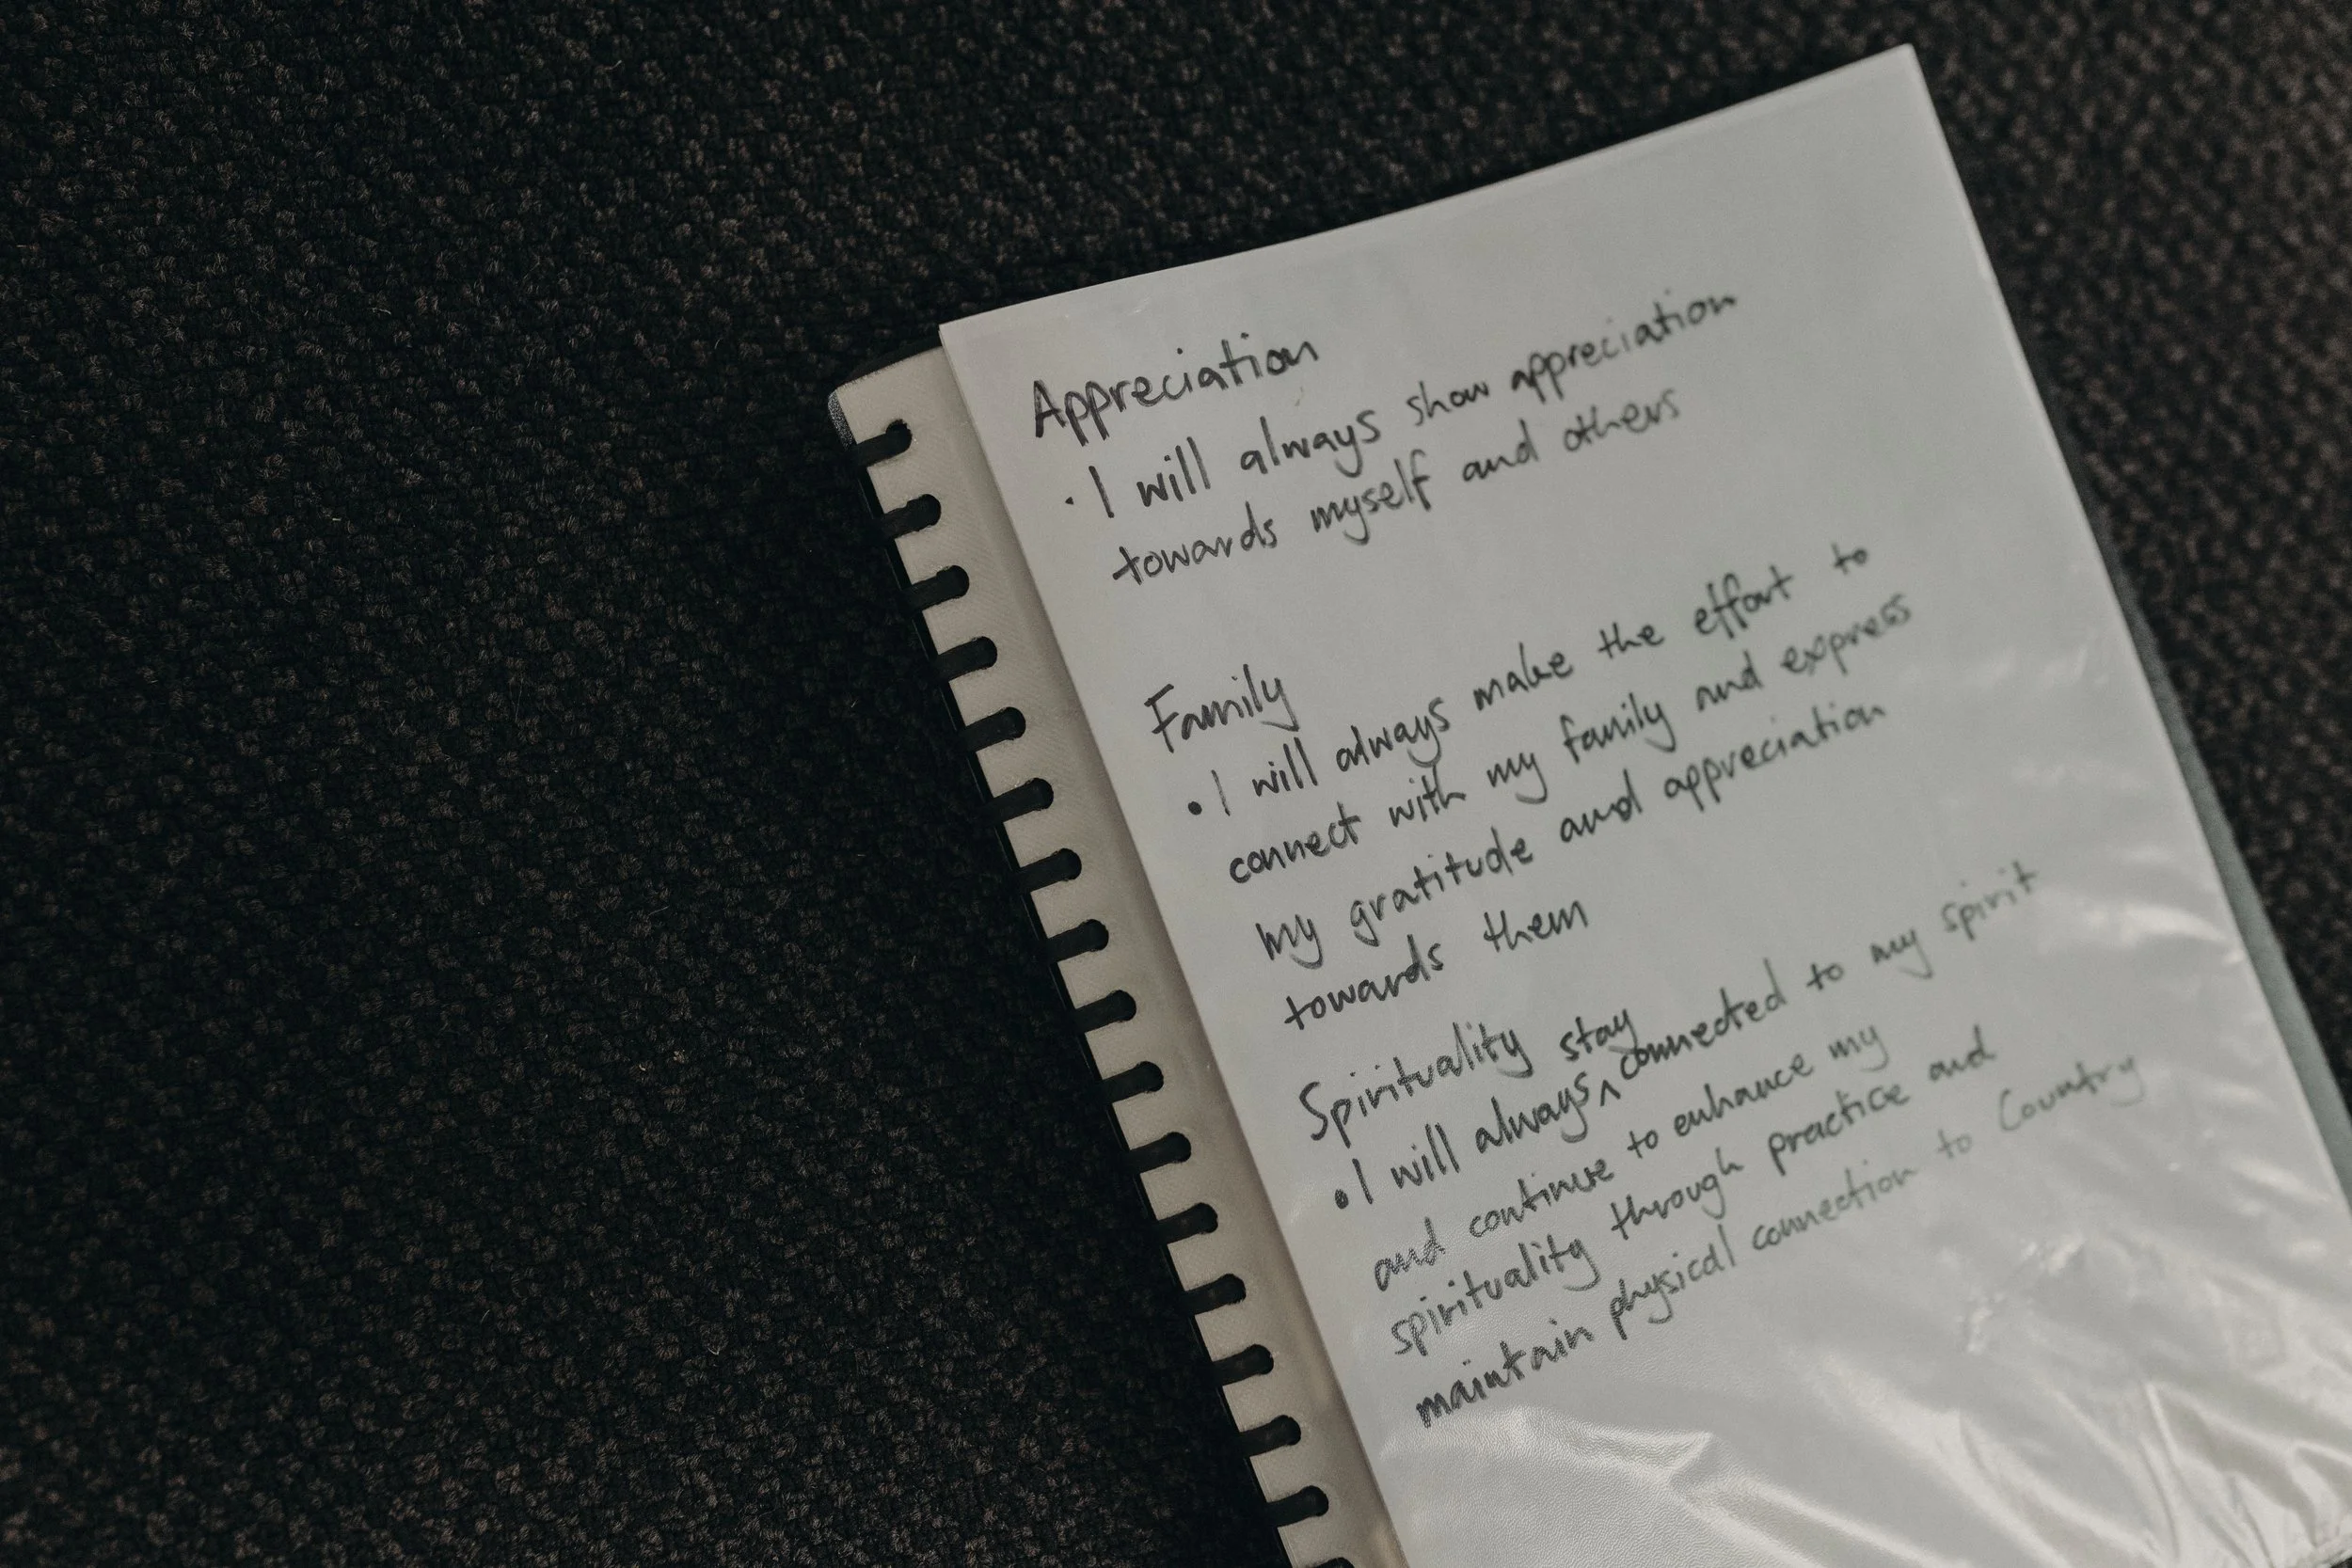 Appreciation
· I will always show appreciation
towards myself and others
Family
• I will always make the effort to
connect with my family and express
my gratitude and appreciation
towards them
Spirituality
• I will always ^ stay connected to my spirit
and continue to enhance my
spirituality through practice and
maintain physical connection to Country